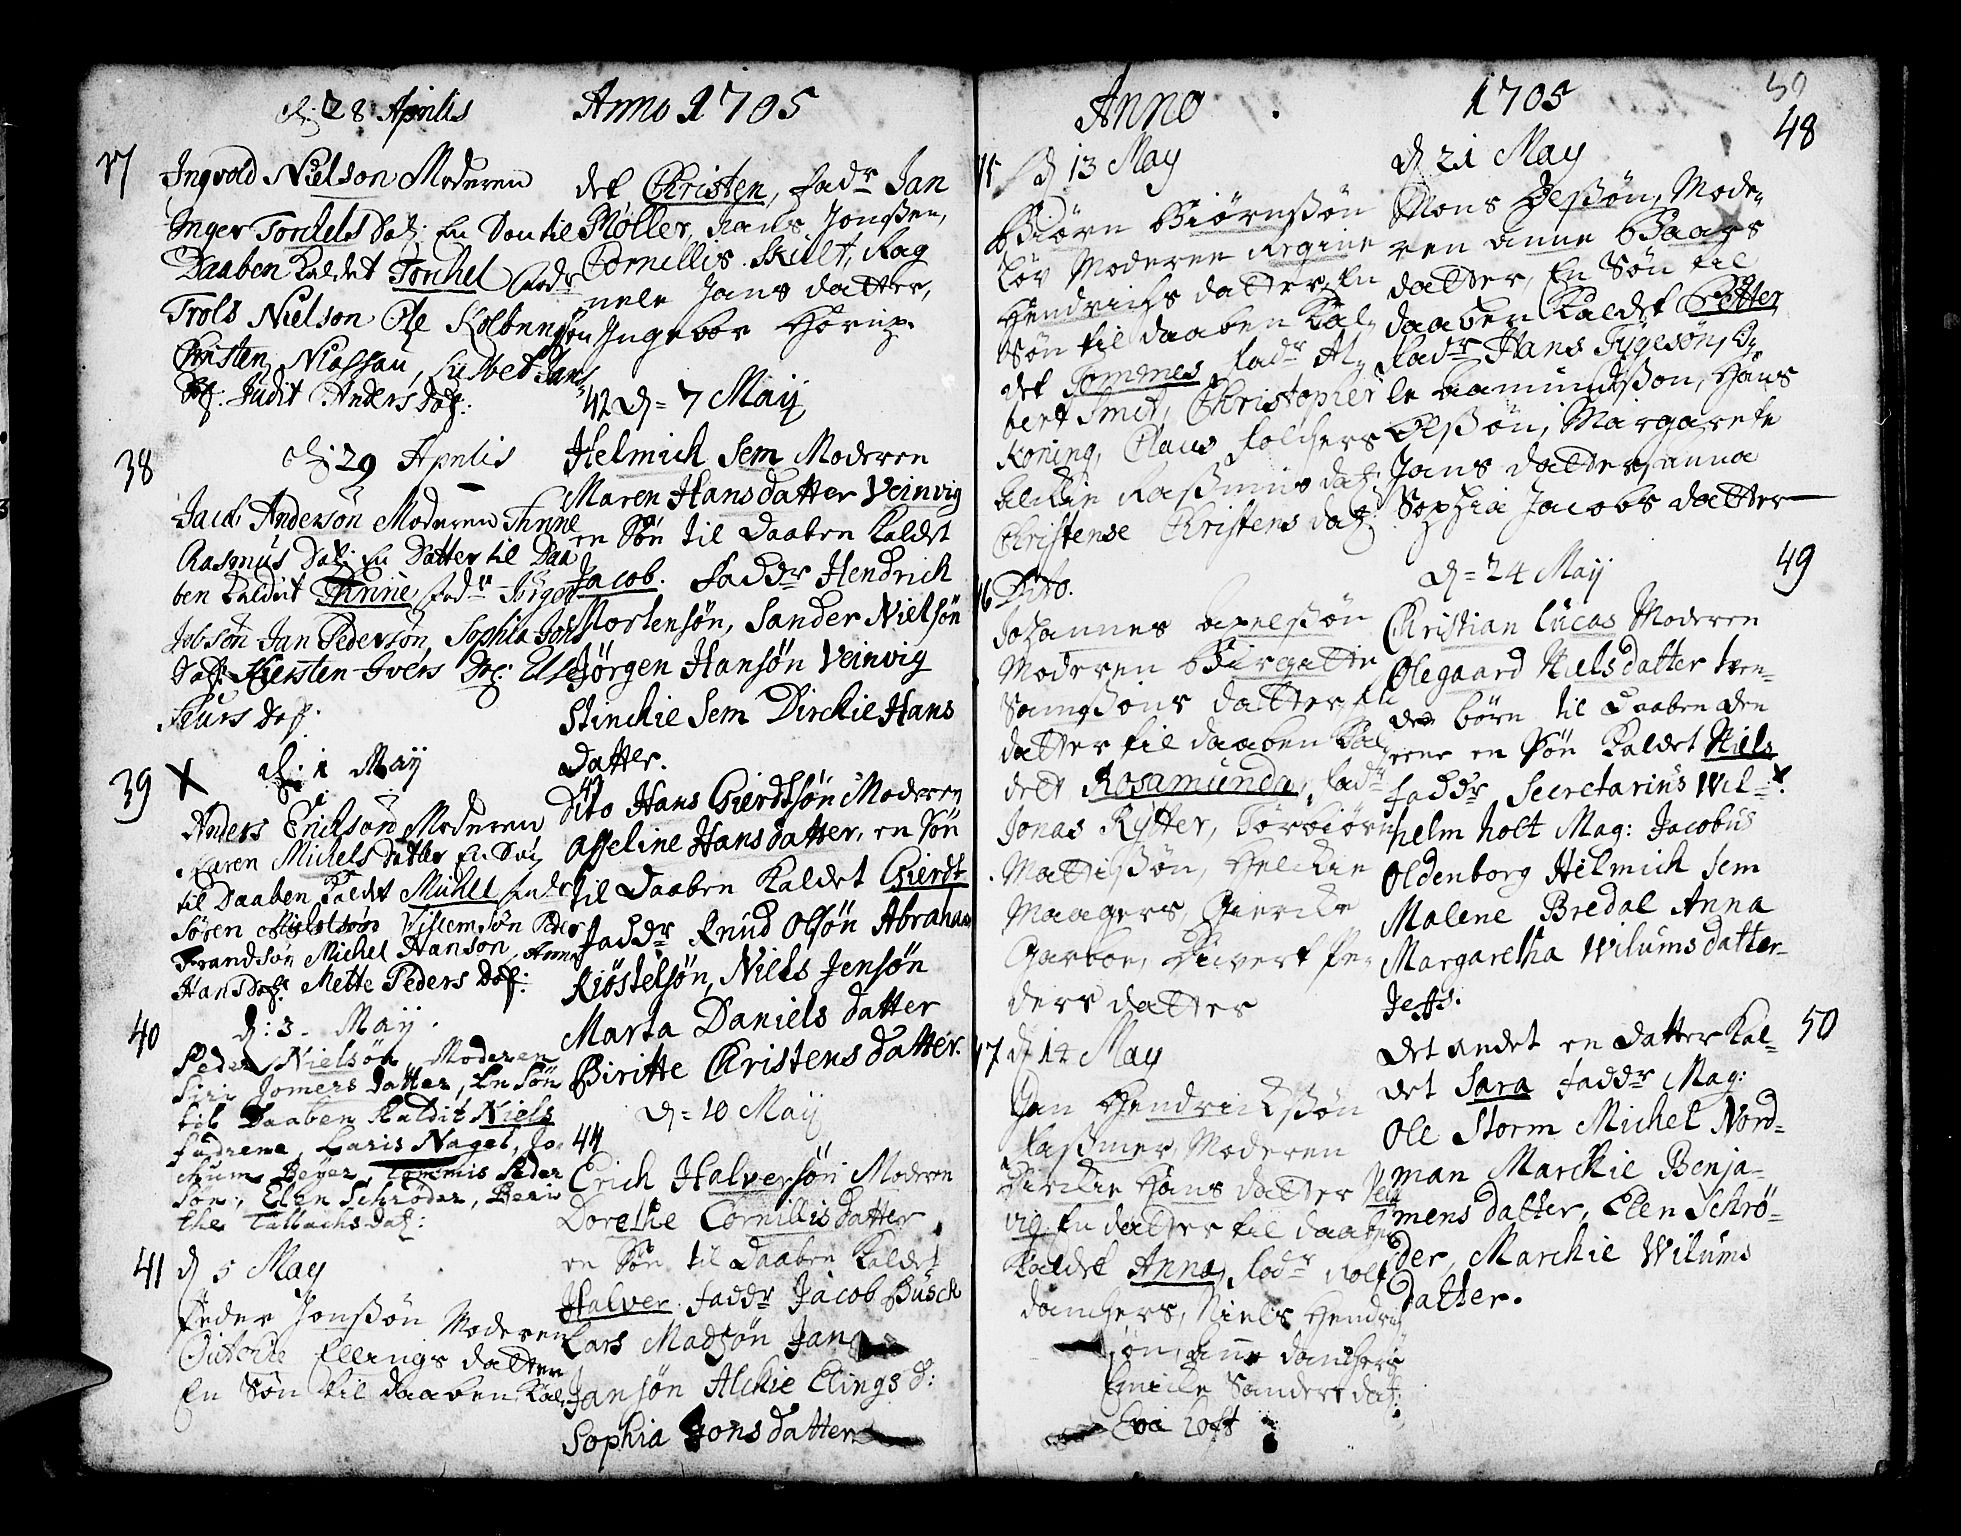 d: 28 Aprilis
Anno 1705
37
Ingvold Nielson Moderen
Inger Tonkels Datt: En Søn til
Daaben Kaldet Tonkel Fadr
Trols Nielson Ole
Christen Nielssøn, Lisbet Jans
Datt. Judit Anders Datt:
38
d: 29 Aprilis
Jacob Andersøn Moderen Anne
Rasmus Datt: En Datter til Daa
ben Kaldet Anne, Fadr
Jebsøn Jan Pedersøn, Sophia Jons
Datt: Kiersten Ivers Dat: Else
Datt:
39
X d: 1 May
Anders Erichsøn Moderen
Karen Michels Datter En Søn
til Daaben Kaldet Michel Fadr
Søren Willemsøn Peder
Frandsøn Michel Hanson, Anne
Hans Dat: Mette Peders Dat:
40
d: 3. May.
Peder Nielsøn, Moderen
Siri Jomers Datter, En Søn
til Daaben Kaldit Niels
fadrene, Laris Nagel, Jo
chum Beyer, Tommis Peder
Søn, Elen Schrøder, Beri
the Talbachs Dat:
41
d 5 May
Peder Jonssøn Moderen
Ellings datter
En Søn til daaben Kal
det Christen, Fadr Jan
Møller, Hans Jonssen,
Cornellis Skilt, Rag
nele Jans datter,
Ingebor Hørup.
42 d = 7 Maij
Helmich Sem Moderen
Maren Hans datter Veinvig
en Søn til Daaben Kaldet
Jacob. Faddr Hendrich
Mortensøn, Sander Nielsøn
Jørgen Hansøn Veinvig
Stinckie Sem Dirckie Hans
Datter.
43
Dito Hans Gierdtsøn Moderen
Asseline Hans datter, en Søn
til Daaben Kaldet Gierdt
Faddr Knud Olsøn Abraham
Kiøstelsøn, Niels Jensøn
Marta Daniels datter
Biritte Christens datter.
d = 10 Maij
44
Erich Halversøn Moderen
Dorethe Cornillis datter
en Søn til Daaben Kaldet
Halver. Faddr Jacob Büsch
Lars Madsøn Jan
Jansøn Alckie Elings d:
Sophia Jons datter
Anno 1705
50
45 d 13 May
Biørn Biørnssøn
Løv Moderen Regine
Hendrichs datter, En
Søn til daaben Kal
det Tommes Fadr Al
bert Smit, Christopher
Koning, Claus Folchers
Rassmus dat:
Christense Christens dat:
46 Dito.
Johannes Axelssøn
Moderen Birgitte
Samssøns datter, En
datter til daaben Kal
det Rosamunda, Fadr
Jonas Rytter, Torbiørn
Mattissøn, Helckie
Maagers, Giercke
Garboe, Sivert Pe
ders datter
47 d 14 May
Jan Hendrickssøn
Rassmer, Moderen
Hans datter Vein
vig En datter til daaben
Kaldet Anna, Fadr Rolf
danchers, Niels Hendrich
søn, Anne danchers
Sanders dat:
Eva Loft
48
d 21 May
Mons Olssøn, Mode
ren Anne Baars
datter, En Søn til
daaben Kaldet Petter
Fadr Hans Tygesøn, O
le Aamundssøn, Hans
Olssøn, Margarete
Jans datter, Anna
Sophia Jacobs datter
49
d = 24 May
Christian Lucas Moderen
Olegaard Niels datter tven
de børn til Daaben den
eene en Søn Kaldet Niels
Faddr Secretarius Wil
helm holt Mag: Jacobus
Oldenborg Helmich Sem
Malene Bredal Anna
Margaretha Wilums datter
Jess.
50
Det andet en datter Kal
det Sara Faddr Mag:
Ole Storm Michel Nord
man Marckie Benja
mens datter, Elen Schrø
der, Marckie Wilums
datter.